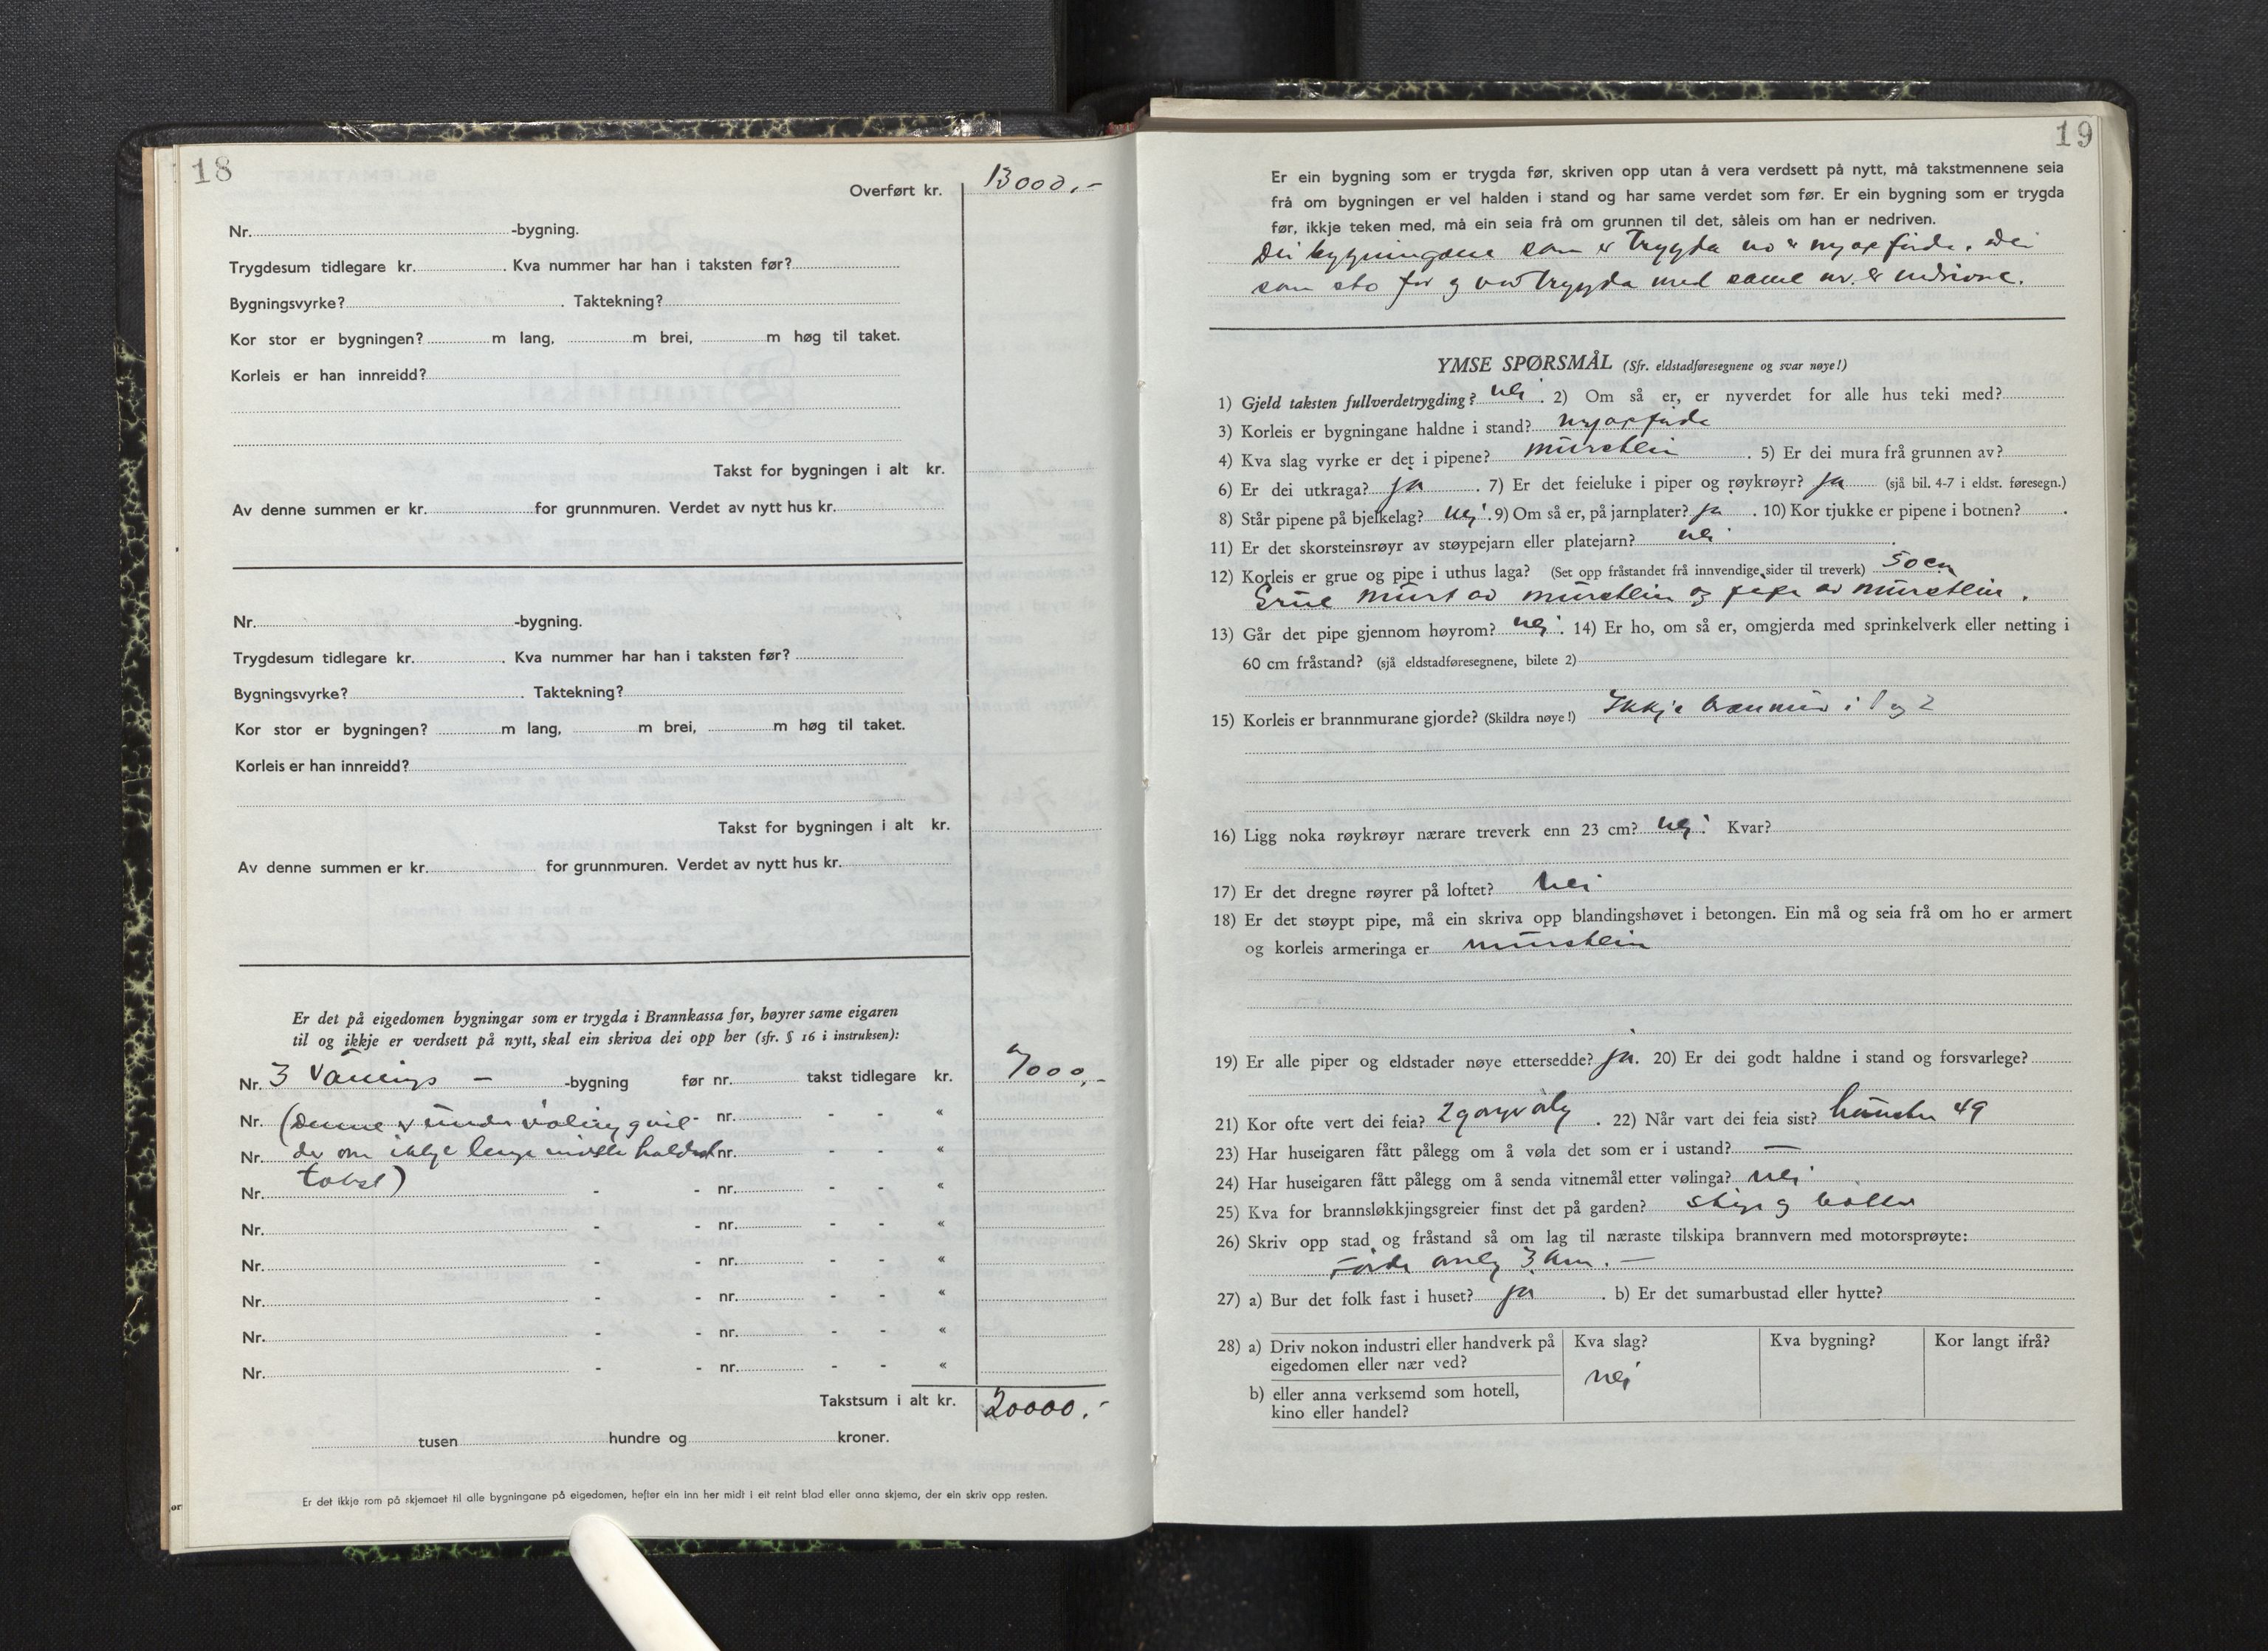 18
Overført kr. 13000.-
Nr. -bygning.
Trygdesum tidlegare kr. . Kva nummer har han i taksten før?
Bygningsvyrke? . Taktekning?
Kor stor er bygningen? m lang, m brei, m høg til taket.
Korleis er han innreidd?
Takst for bygningen i alt kr.
Av denne summen er kr. for grunnmuren. Verdet av nytt hus kr.
Nr. -bygning.
Trygdesum tidlegare kr. . Kva nummer har han i taksten før?
Bygningsvyrke? . Taktekning?
Kor stor er bygningen? m lang, m brei, m høg til taket.
Korleis er han innreidd?
Takst for bygningen i alt kr.
Av denne summen er kr. for grunnmuren. Verdet av nytt hus kr.
Er det på eigedomen bygningar som er trygda i Brannkassa før, høyrer same eigaren
til og ikkje er verdsett på nytt, skal ein skriva dei opp her (sfr. § 16 i instruksen):
Nr. 3 Vånings - -bygning før nr. takst tidlegare kr. 7000,-
Nr. (Denne er under vøling - nr. - - «
Nr. ikkje lenge nr. - - «
Nr. takst) - - nr. - - «
Nr. - - nr. - - «
Nr. - - nr. - - «
Nr. - - nr. - - «
Nr. - - nr. - - «
Nr. - - nr. - - «
Takstsum i alt kr. 20000.-
tusen hundre og kroner.
Er det ikkje rom på skjemaet til alle bygningane på eigedomen, hefter ein inn her midt i eit reint blad eller anna skjema, der ein skriv opp resten.
19
Er ein bygning som er trygda før, skriven opp utan å vera verdsett på nytt, må takstmennene seia
frå om bygningen er vel halden i stand og har same verdet som før. Er ein bygning som er trygda
før, ikkje teken med, må ein seia frå om grunnen til det, såleis om han er nedriven.
Dei bygningane som er trygda no er nyoppførde. Dei
som sto før og var trygda med same nr. er nedrivne.
YMSE SPØRSMÅL (Sfr. eldstadføresegnene og svar nøye!)
1) Gjeld taksten fullverdetrygding? nei. 2) Om så er, er nyverdet for alle hus teki med?
3) Korleis er bygningane haldne i stand? nyoppførde
4) Kva slag vyrke er det i pipene? murstein . 5) Er dei mura frå grunnen av?
6) Er dei utkraga? ja . 7) Er det feieluke i piper og røykrøyr? ja (sjå bil. 4-7 i eldst. føresegn.)
8) Står pipene på bjelkelag? nei. 9) Om så er, på jarnplater? ja . 10) Kor tjukke er pipene i botnen? .
11) Er det skorsteinsrøyr av støypejarn eller platejarn? nei .
12) Korleis er grue og pipe i uthus laga? (Set opp fråstandet frå innvendige sider til treverk) 50 cm
Grue murt av murstein og pipe av murstein.
13) Går det pipe gjennom høyrom? nei. 14) Er ho, om så er, omgjerda med sprinkelverk eller netting i
60 cm fråstand? (sjå eldstadføresegnene, bilete 2)
15) Korleis er brannmurane gjorde? (Skildra nøye!) Ikkje brannmur i 1 og 2
16) Ligg noka røykrøyr nærare treverk enn 23 cm? nei. Kvar?
17) Er det dregne røyrer på loftet? nei
18) Er det støypt pipe, må ein skriva opp blandingshøvet i betongen. Ein må og seia frå om ho er armert
og korleis armeringa er murstein
19) Er alle piper og eldstader nøye ettersedde? ja. 20) Er dei godt haldne i stand og forsvarlege?
21) Kor ofte vert dei feia? 2 gongr årlg . 22) Når vart dei feia sist? hausten 49
23) Har huseigaren fått pålegg om å vøla det som er i ustand? —
24) Har huseigaren fått pålegg om å senda vitnemål etter vølinga? nei
25) Kva for brannsløkkjingsgreier finst det på garden? stige og bøtter
26) Skriv opp stad og fråstand så om lag til næraste tilskipa brannvern med motorsprøyte:
Førde 3 km. —
27) a) Bur det folk fast i huset? ja . b) Er det sumarbustad eller hytte?
28) a) Driv nokon industri eller handverk på eigedomen eller nær ved? Kva slag? Kva bygning? Kor langt ifrå?
nei
b) eller anna verksemd som hotell, kino eller handel?